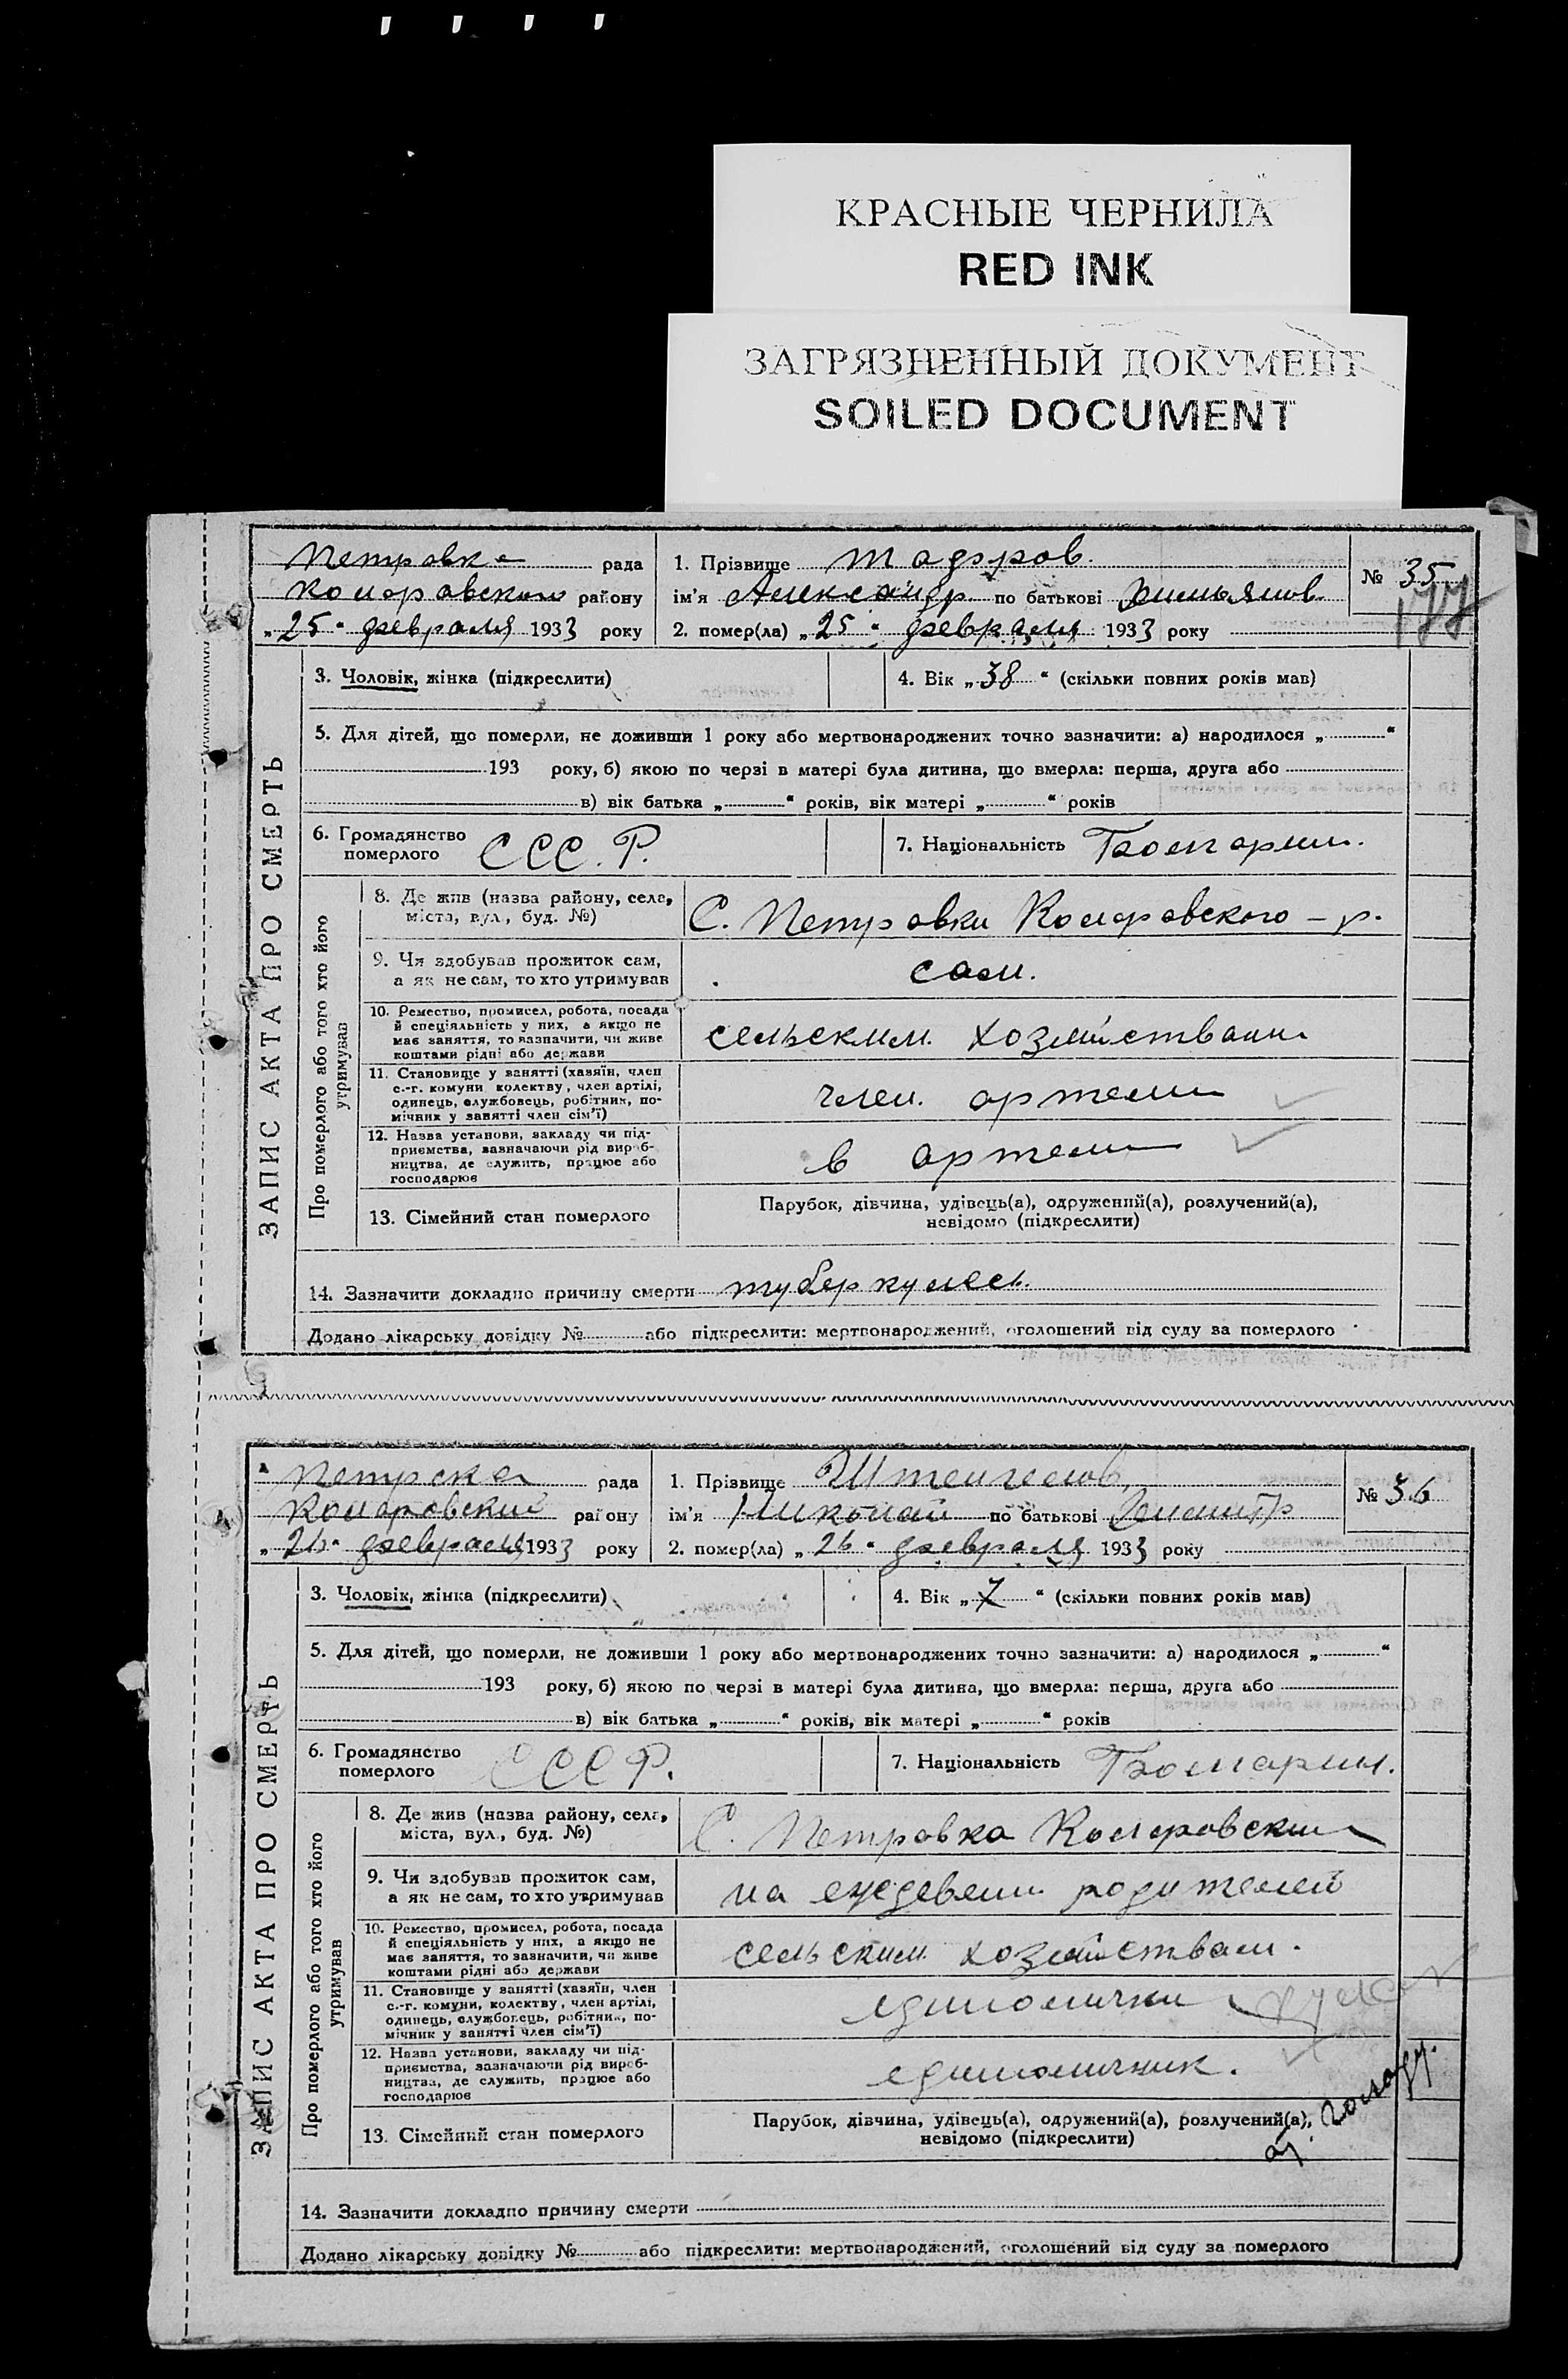 КРАСНЫЕ ЧЕРНИЛА
RED INK
ЗАГРЯЗНЕННЫЙ ДОКУМЕНТ
SOILED DOCUMENT
Петровка рада
Коларовского району
„25“ февраля 1933 року
1. Прізвище Тодоров
ім'я Александр по батькові
2. помер(ла) „25“ февраля 1933 року
№ 35
ЗАПИС АКТА ПРО СМЕРТЬ
3. Чоловік, жінка (підкреслити)
4. Вік „38“ (скільки повних років мав)
5. Для дітей, що померли, не доживши 1 року або мертвонароджених точно зазначити: а) народилося „ “
193 року, б) якою по черзі в матері була дитина, що вмерла: перша, друга або
в) вік батька „ “ років, вік матері „ “ років
6. Громадянство померлого СССР.
7. Національність Болгарин.
Про померлого або того хто його утримував
8. Де жив (назва району, села,
міста, вул., буд. №)
С. Петровки Коларовского – р.
9. Чи здобував прожиток сам,
а як не сам, то хто утримував
сам.
10. Ремество, промисел, робота, посада
й спеціяльність у них, а якщо не
має заняття, то зазначити, чи живе
коштами рідні або держави
сельским хозяйствам
11. Становище у занятті (хазяїн, член
с.-г. комуни, колектву, член артілі,
одинець, службовець, робітник, по-
мічник у занятті член сім'ї)
член. артели
12. Назва установи, закладу чи під-
приємства, зазначаючи рід вироб-
ництва, де служить, працює або
господарює
в артели
13. Сімейний стан померлого
Парубок, дівчина, удівець(а), одружений(а), розлучений(а),
невідомо (підкреслити)
14. Зазначити докладно причину смерти туберкулез.
Додано лікарську довідку № або підкреслити: мертвонароджений, оголошений від суду за померлого
рада
Коларовский району
„26“ февраля 1933 року
1. Прізвище
ім'я Николай по батькові
2. помер(ла) „26“ февраля 1933 року
№ 36
ЗАПИС АКТА ПРО СМЕРТЬ
3. Чоловік, жінка (підкреслити)
4. Вік „7“ (скільки повних років мав)
5. Для дітей, що померли, не доживши 1 року або мертвонароджених точно зазначити: а) народилося „ “
193 року, б) якою по черзі в матері була дитина, що вмерла: перша, друга або
в) вік батька „ “ років, вік матері „ “ років
6. Громадянство померлого СССР.
7. Національність Болгарин.
Про померлого або того хто його утримував
8. Де жив (назва району, села,
міста, вул., буд. №)
С. Петровка Коларовский
9. Чи здобував прожиток сам,
а як не сам, то хто утримував
на родителей
10. Ремество, промисел, робота, посада
й спеціяльність у них, а якщо не
має заняття, то зазначити, чи живе
коштами рідні або держави
сельским хозяйствам.
11. Становище у занятті (хазяїн, член
с.-г. комуни, колектву, член артілі,
одинець, службовець, робітник, по-
мічник у занятті член сім'ї)
12. Назва установи, закладу чи під-
приємства, зазначаючи рід вироб-
ництва, де служить, працює або
господарює
единоличник.
13. Сімейний стан померлого
Парубок, дівчина, удівець(а), одружений(а), розлучений(а),
невідомо (підкреслити)
от голоду.
14. Зазначити докладно причину смерти
Додано лікарську довідку № або підкреслити: мертвонароджений, оголошений від суду за померлого